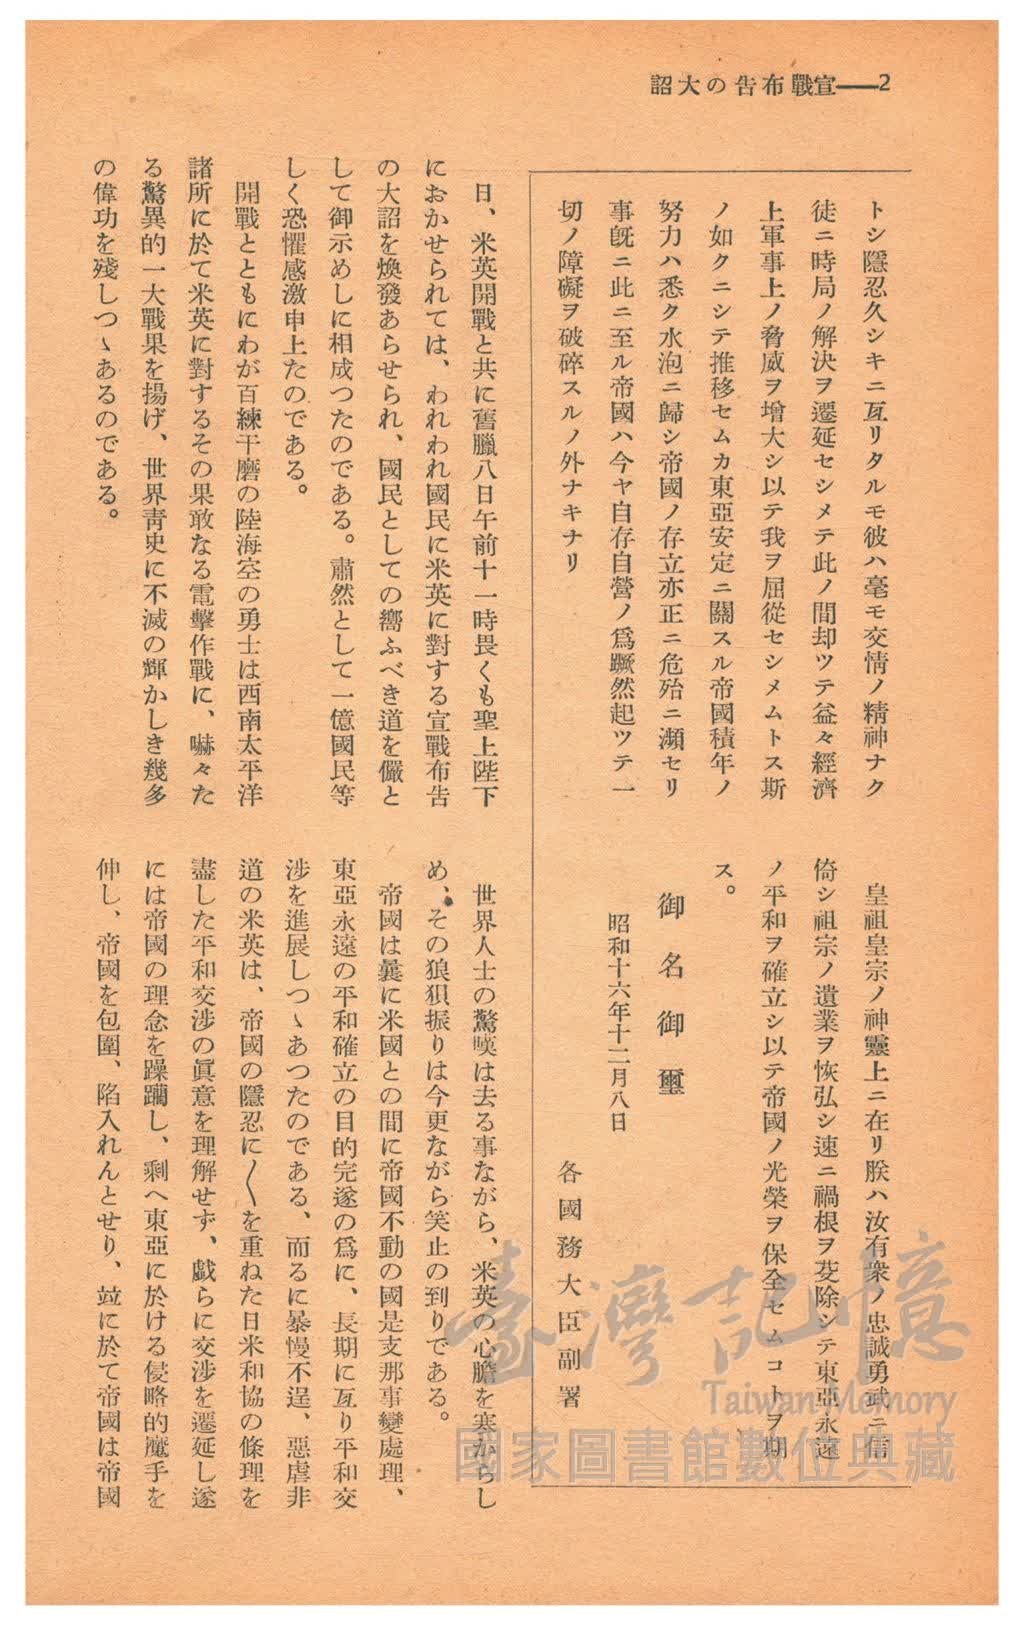 2——宣戰布告の大詔
トシ隱忍久シキニ亙リタルモ彼ハ毫モ交情ノ精神ナク
徒ニ時局ノ解決ヲ遷延セシメテ此ノ間却ツテ益々經濟
上軍事上ノ脅威ヲ增大シ以テ我ヲ屈從セシメムトス斯
ノ如クニシテ推移セムカ東亞安定ニ關スル帝國積年ノ
努力ハ悉ク水泡ニ歸シ帝國ノ存立亦正ニ危殆ニ瀕セリ
事旣ニ此ニ至ル帝國ハ今ヤ自存自營ノ爲蹶然起ツテ一
切ノ障礙ヲ破碎スルノ外ナキナリ
皇祖皇宗ノ神靈上ニ在リ朕ハ汝有衆ノ忠誠勇武ニ信
倚シ祖宗ノ遺業ヲ恢弘シ速ニ禍根ヲ芟除シテ東亞永遠
ノ平和ヲ確立シ以テ帝國ノ光榮ヲ保全セムコトヲ期
ス。
御名御璽
昭和十六年十二月八日
各國務大臣副署
日、米英開戰と共に舊臘八日午前十一時畏くも聖上陛下
におかせられては、われわれ國民に米英に對する宣戰布告
の大詔を煥發あらせられ、國民としての嚮ふべき道を儼と
して御示めしに相成つたのである。肅然として一億國民等
しく恐懼感激申上たのである。
開戰とともにわが百練干磨の陸海空の勇士は西南太平洋
諸所に於て米英に對するその果敢なる電擊作戰に、嚇々た
る驚異的一大戰果を揚げ、世界靑史に不滅の輝かしき幾多
の偉功を殘しつゝあるのである。
世界人士の驚嘆は去る事ながら、米英の心膽を寒からし
め、その狼狽振りは今更ながら笑止の到りである。
帝國は曩に米國との間に帝國不動の國是支那事變處理、
東亞永遠の平和確立の目的完遂の爲に、長期に亙り平和交
涉を進展しつゝあつたのである、而るに暴慢不逞、惡虐非
道の米英は、帝國の隱忍に〱を重ねた日米和協の條理を
盡した平和交涉の眞意を理解せず、戲らに交涉を遷延し遂
には帝國の理念を躁躙し、剩へ東亞に於ける侵略的魔手を
伸し、帝國を包圍、陷入れんとせり、玆に於て帝國は帝國
臺灣記憶
Taiwan Memory
國家圖書館數位典藏